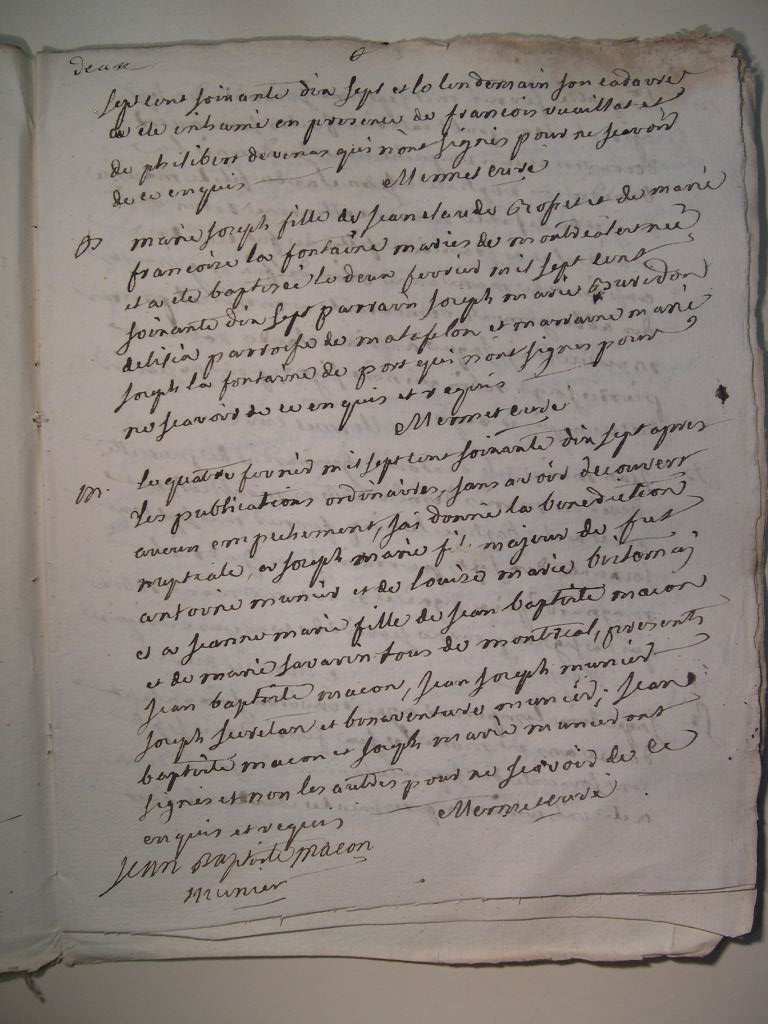 deux
sept cent soixante dix sept et le lendemain son cadavre
a ete inhumé en presence de francois vuaillat et
de philibert devenas qui n'ont signés pour ne scavoir
de ce enquis Mermet curé
B marie joseph fille de jean claude Grosfet et de marie
francoise la fontaine mariés de montréal est née
et a ete baptisée le deux fevrier mil sept cent
soixante dix sept parrain joseph marie
delisia parroisse de matafelon et marraine marie
joseph la fontaine de port qui n'ont signés pour
ne scavoir de ce enquis et requis
Mermet curé
M. le quatre fevrier mil sept cent soixante dix sept apres
les publications ordinaires, sans avoir decouvert
aucun empechement, j'ai donné la benediction
nuptiale, a joseph marie fils majeur de fut
antoine munier et de louise marie
et a jeanne marie fille de jean baptiste macon
et de marie savarin tous de montreal, presents
jean baptiste macon, jean joseph munier
joseph secretan et bonaventure munier; jean
baptiste macon et joseph marie munier ont
signés et non les autres pour ne scavoir de ce
enquis et requis Mermet curé
jean baptiste macon
munier